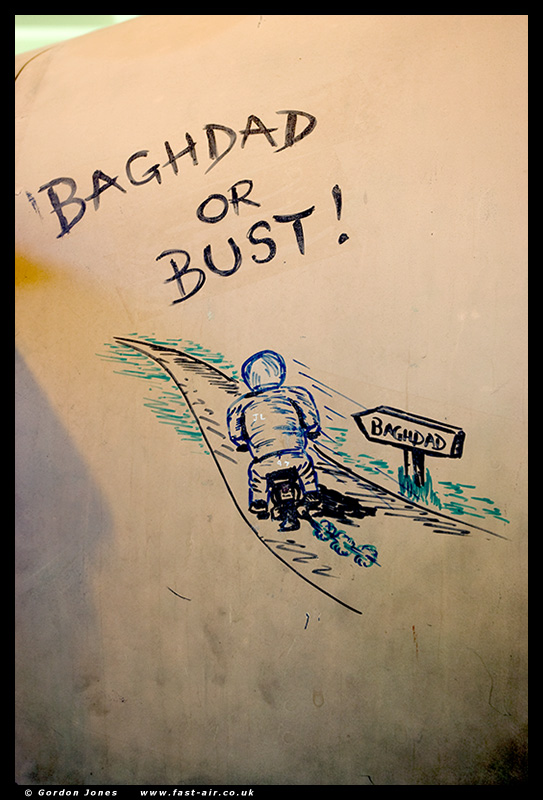 BAGHDAD
OR
BUST!
JL
BAGHDAD
© Gordon Jones www.fast-air.co.uk